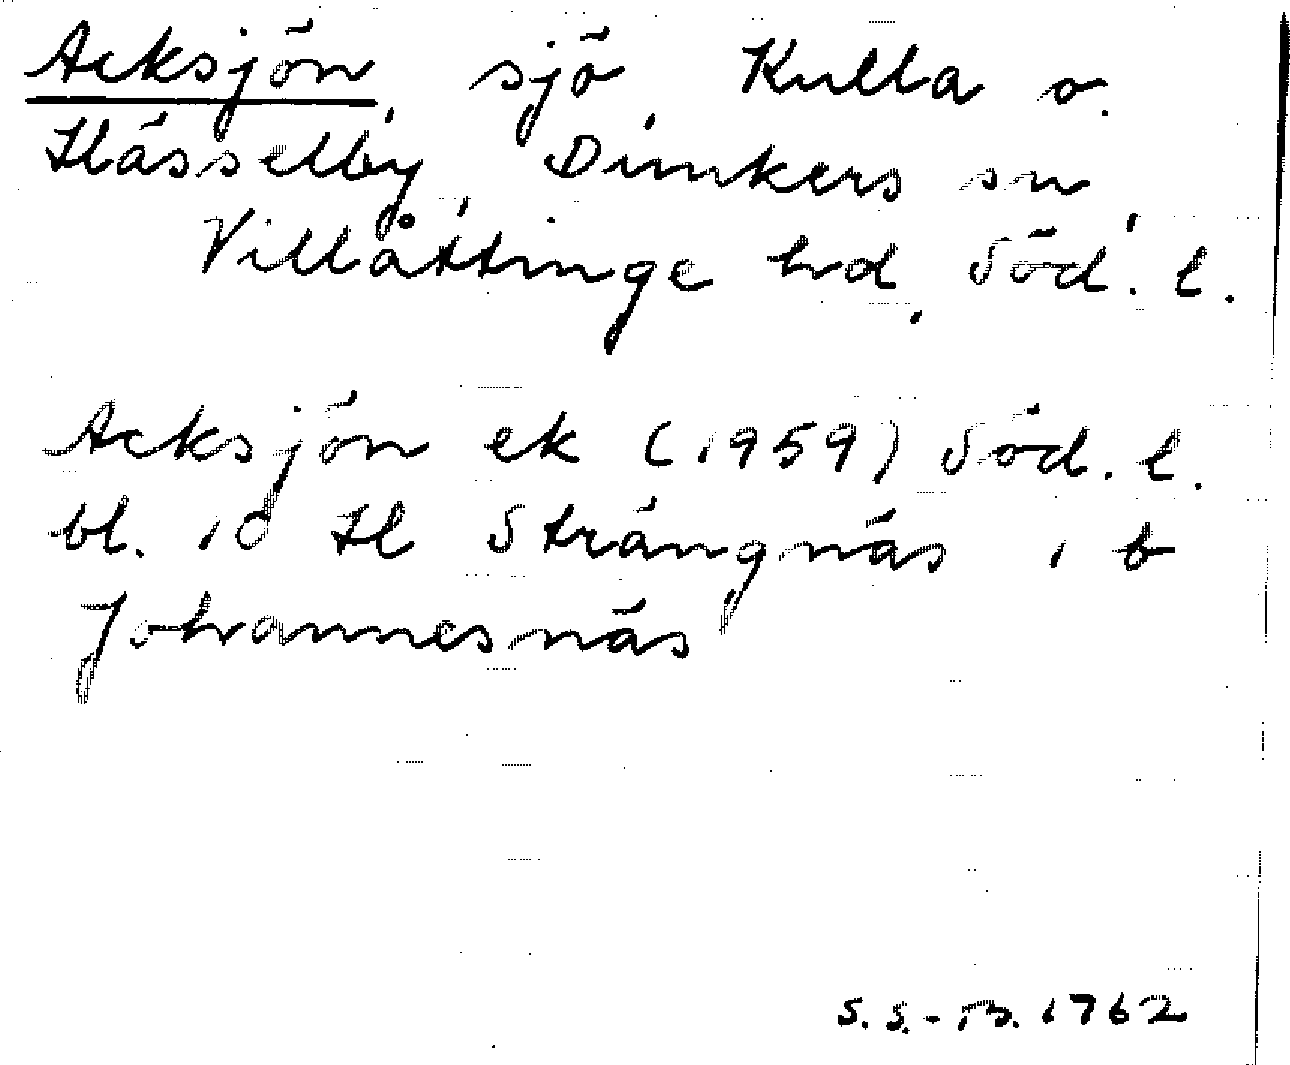 Acksjön, sjö, Kulla o.
Hässelby, Dunkers sn,
Villåttinge hd, Söd. l.
Acksjön ek (1959) Söd. l.
bl. 10 H Strängnäs i b
Johannesnäs
S. S.-B. 1762